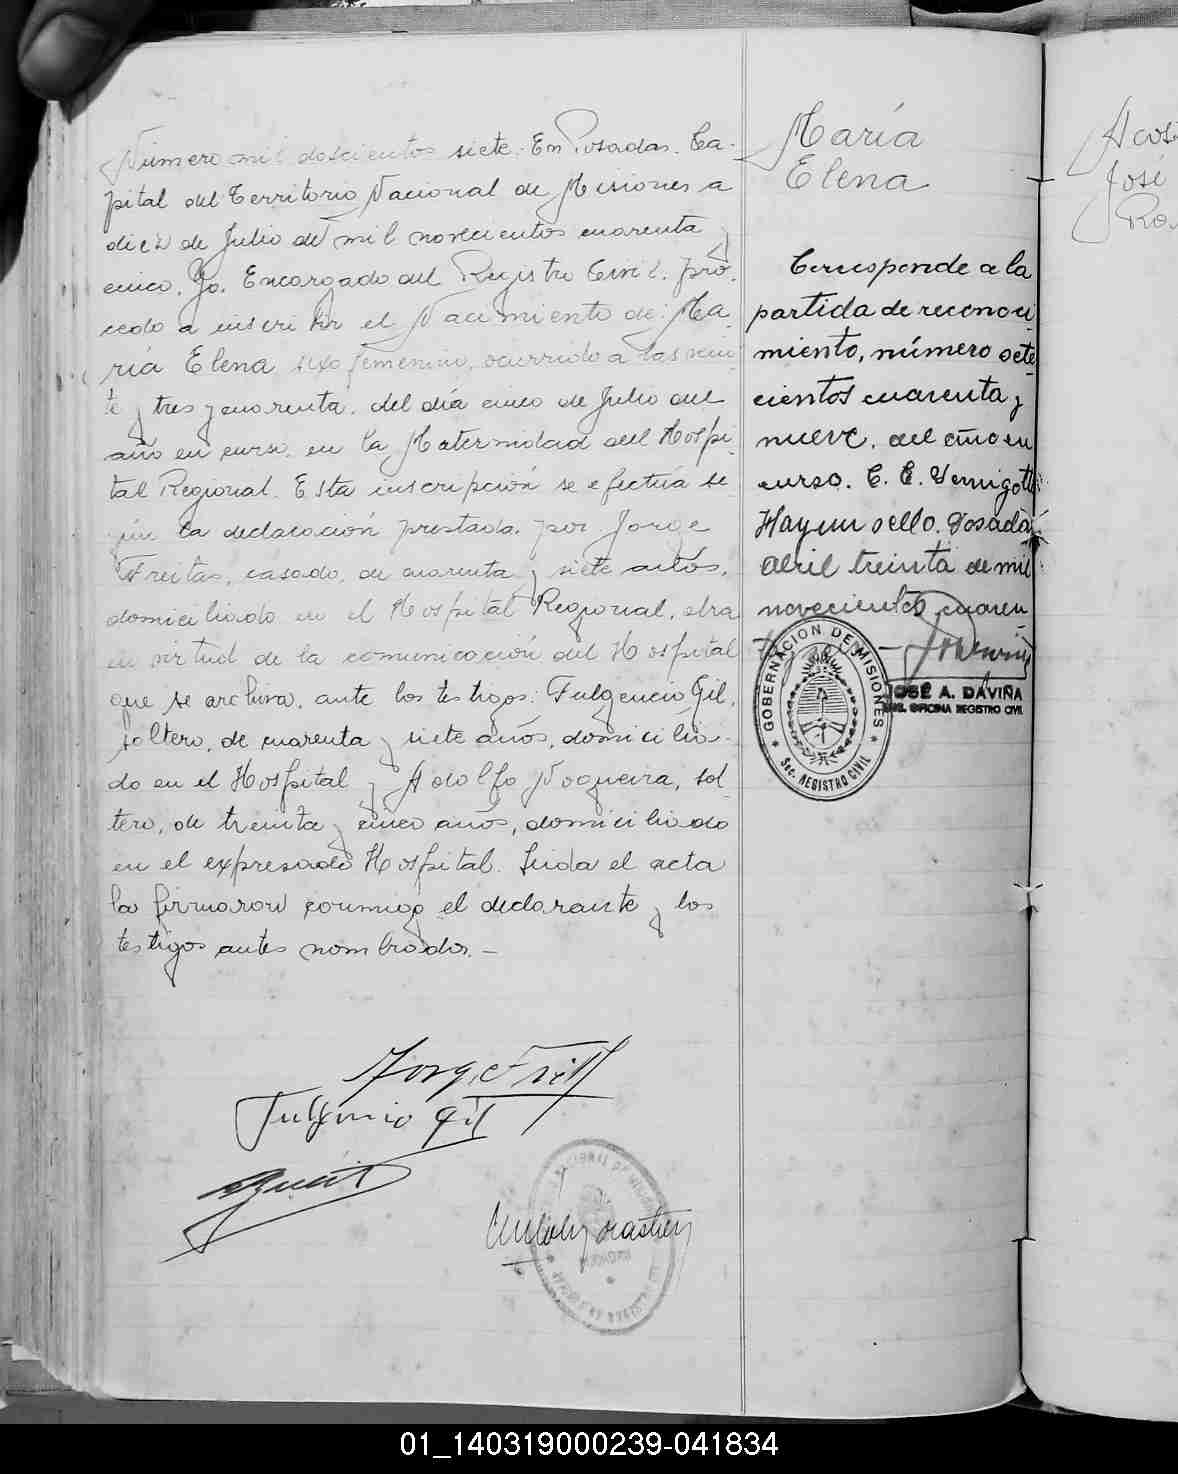 Número mil doscientos siete. En Posadas. Ca-
pital del Territorio Nacional de Misiones a
diez de Julio de mil novecientos cuarenta y
cinco. Yo. Encargado del Registro Civil. pro-
cedo a inscribir el Nacimiento de: Ma-
ría Elena sexo femenino, ocurrido a las vein-
te y tres y cuarenta. del día cinco de Julio del
año en curso. en la Maternidad del Hospi-
tal Regional. Esta inscripción se efectúa se-
gún la declaración prestada. por Jorge
Freitas, casado, de cuarenta y siete años,
domiciliado en el Hospital Regional, obra
en virtud de la comunicación del Hospital
que se archiva. ante los testigos: Fulgencio Gil,
soltero, de cuarenta y siete años, domicilia-
do en el Hospital y Adolfo Nogueira, sol-
tero, de treinta y cinco años, domiciliado
en el expresado Hospital. Leida el acta
la firmaron conmigo el declarante y los
testigos antes nombrados. —
Jorge Freit
Fulgencio Gil
María
Elena
Corresponde a la
partida de reconoci-
miento, número sete-
cientos cuarenta y
nueve. del año en
curso. C. E.
Hay un sello. Posadas
abril treinta de mil
novecientos cuaren-
GOBERNACION DE MISIONES
Sec. REGISTRO CIVIL
JOSÉ A. DAVIÑA
ENC. OFICINA REGISTRO CIVIL
José
01_140319000239-041834